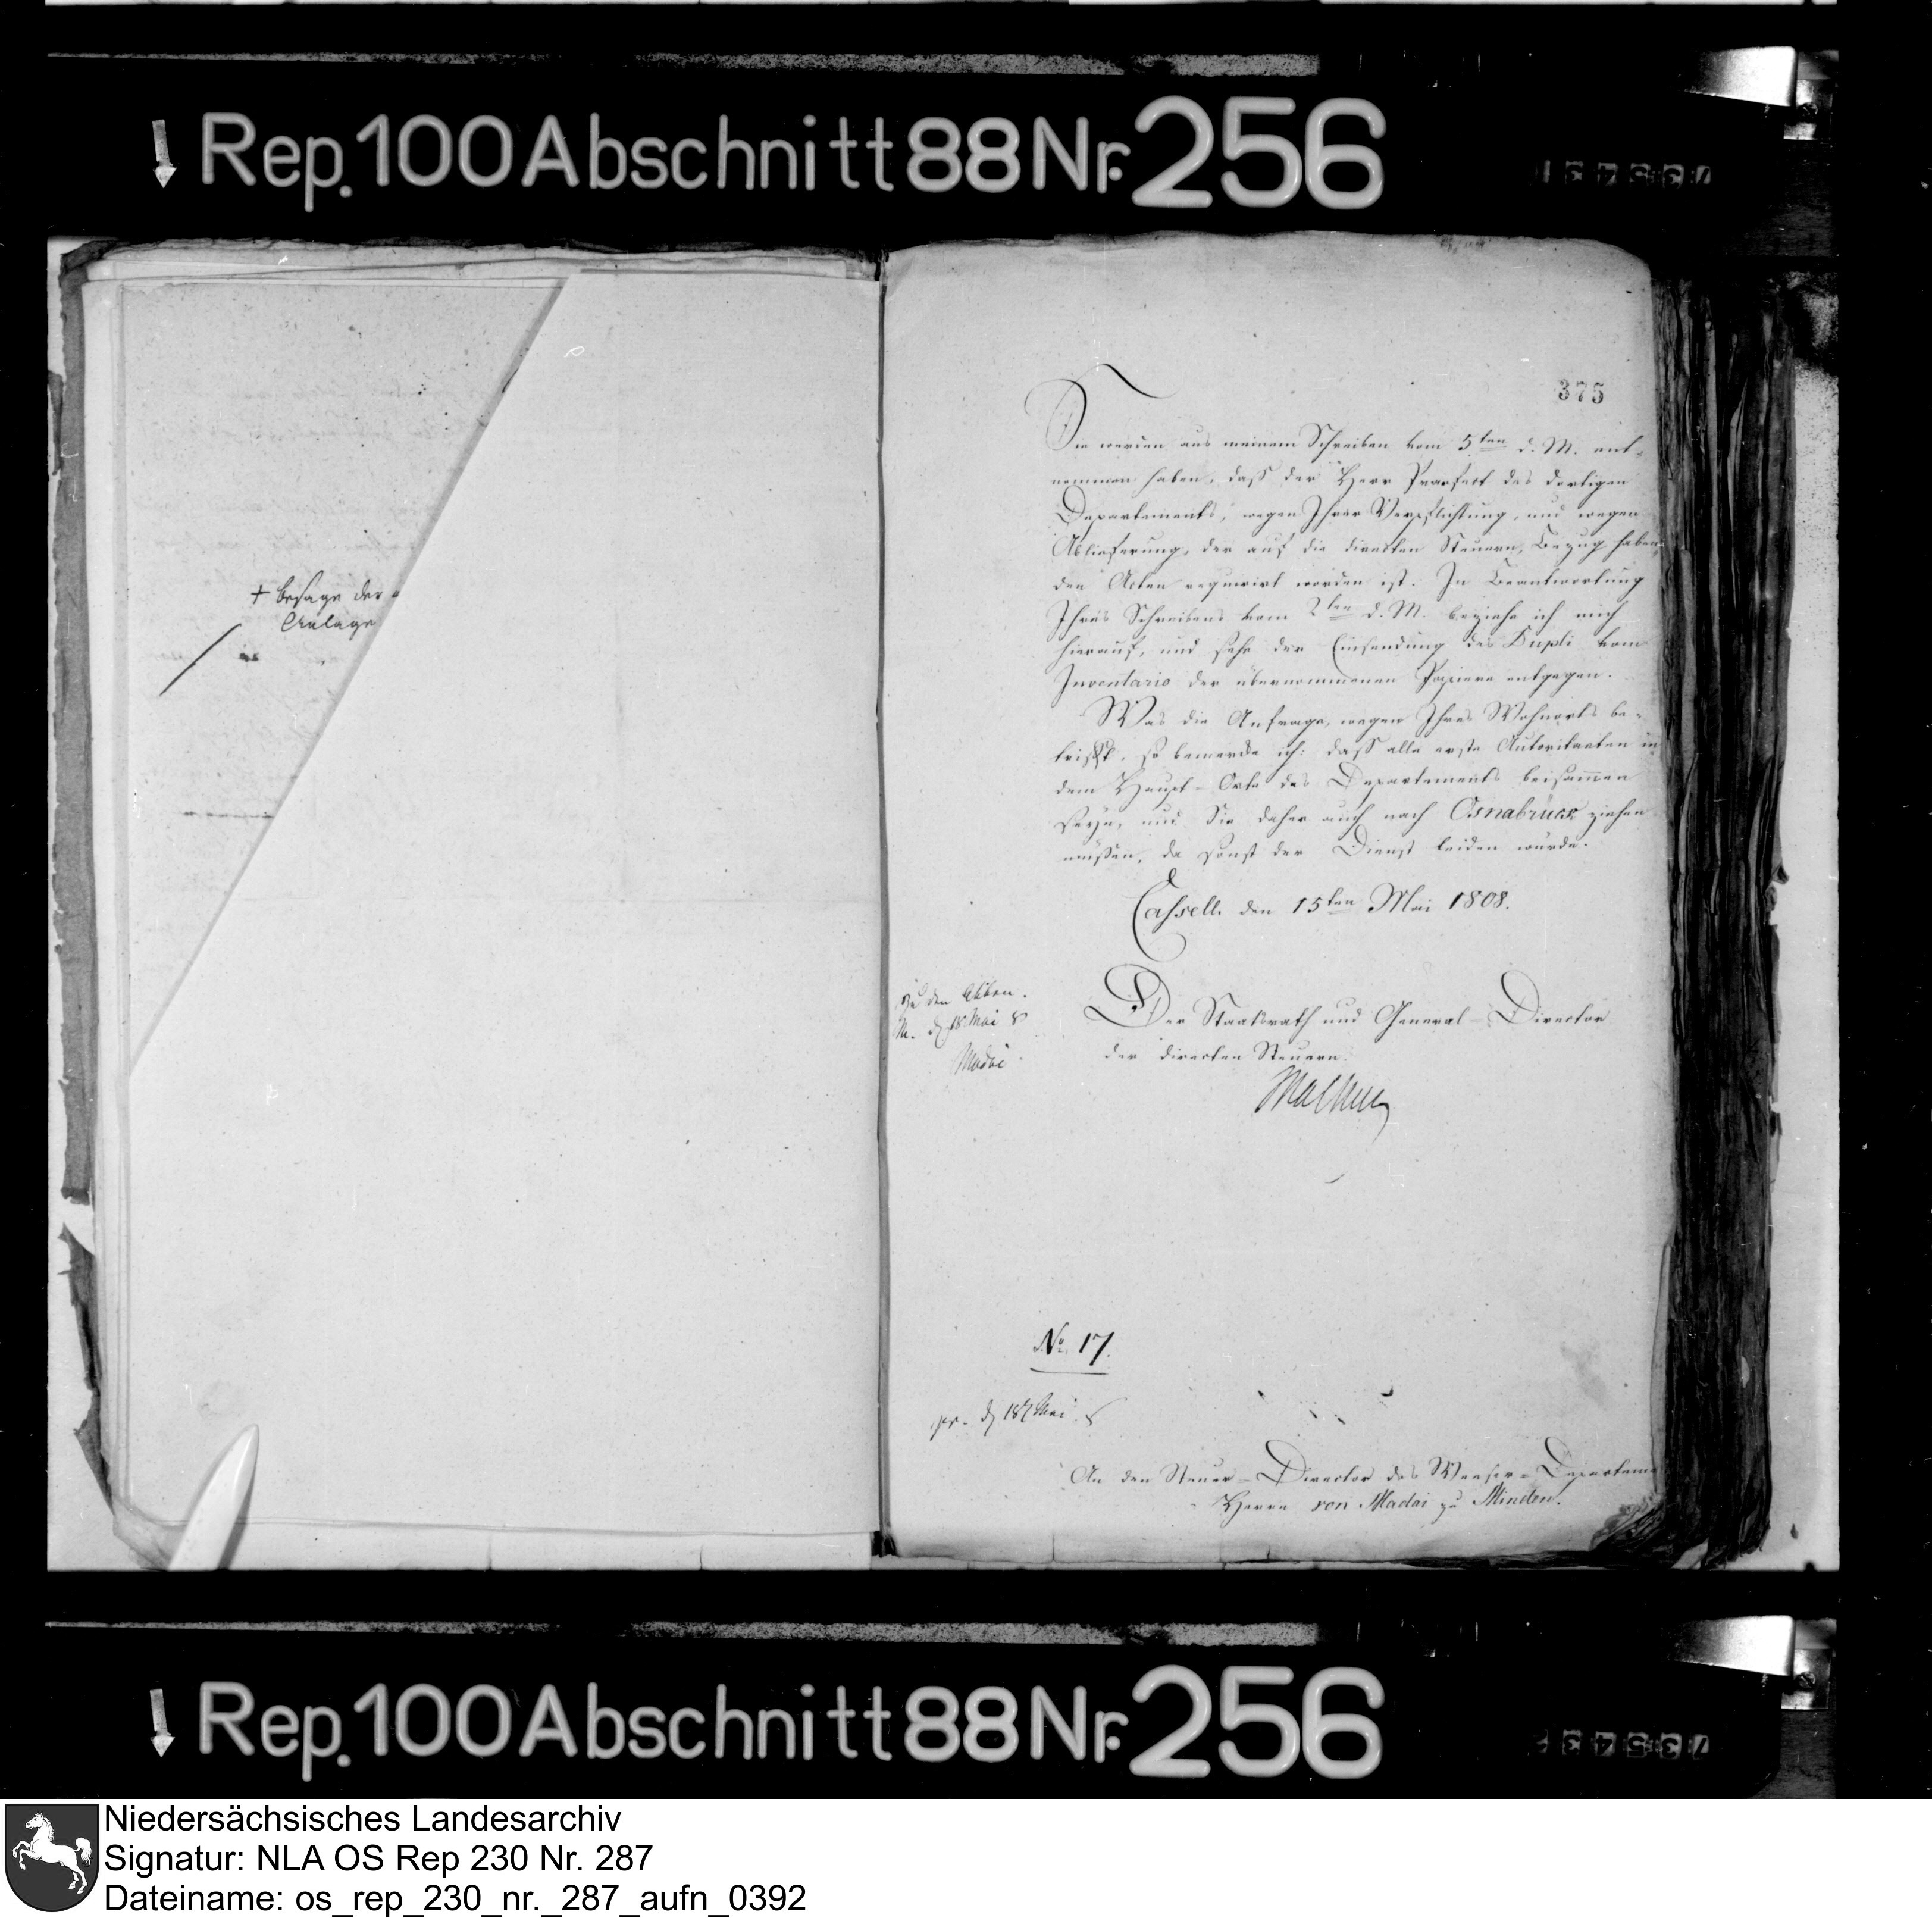 Rep. 100 Abschnitt 88 Nr. 256
+ besage der
Anlage
375
Sie werden aus meinem Schreiben vom 5ten d. M. ent-
nommen haben, daß der Herr Praefect des dortigen
Departements, wegen Ihrer Verpflichtung, und wegen
Ablieferung, der auf die directen Steuern, Bezug haben-
den Acten requirirt worden ist. In Beantwortung
Ihres Schreibens vom 2ten d. M. beziehe ich mich
hierauf, und sehe der Einsendung des Dupli vom
Inventario der übernommenen Papiere entgegen.
Was die Anfrage, wegen Ihres Wohnorts be-
trifft, so bemerke ich: daß alle erste Autoritaeten in
dem Haupt-Orte des Departements beisammen
seyn, und Sie daher auch nach Osnabrück ziehen
müssen, da sonst der Dienst leiden würde.
Cassell den 15ten Mai 1808.
Zu den Akten.
M. d 18 Mai 8
Madai
Der Staatsrath und General-Director
der directen Steuern.
Malchus
No. 17.
pr. d 18 Mai 8
An den Steuer-Director des Weeser-Departem
Herrn von Madai zu Minden.
Rep. 100 Abschnitt 88 Nr. 256
Niedersächsisches Landesarchiv
Signatur: NLA OS Rep 230 Nr. 287
Dateiname: os_rep_230_nr._287_aufn_0392